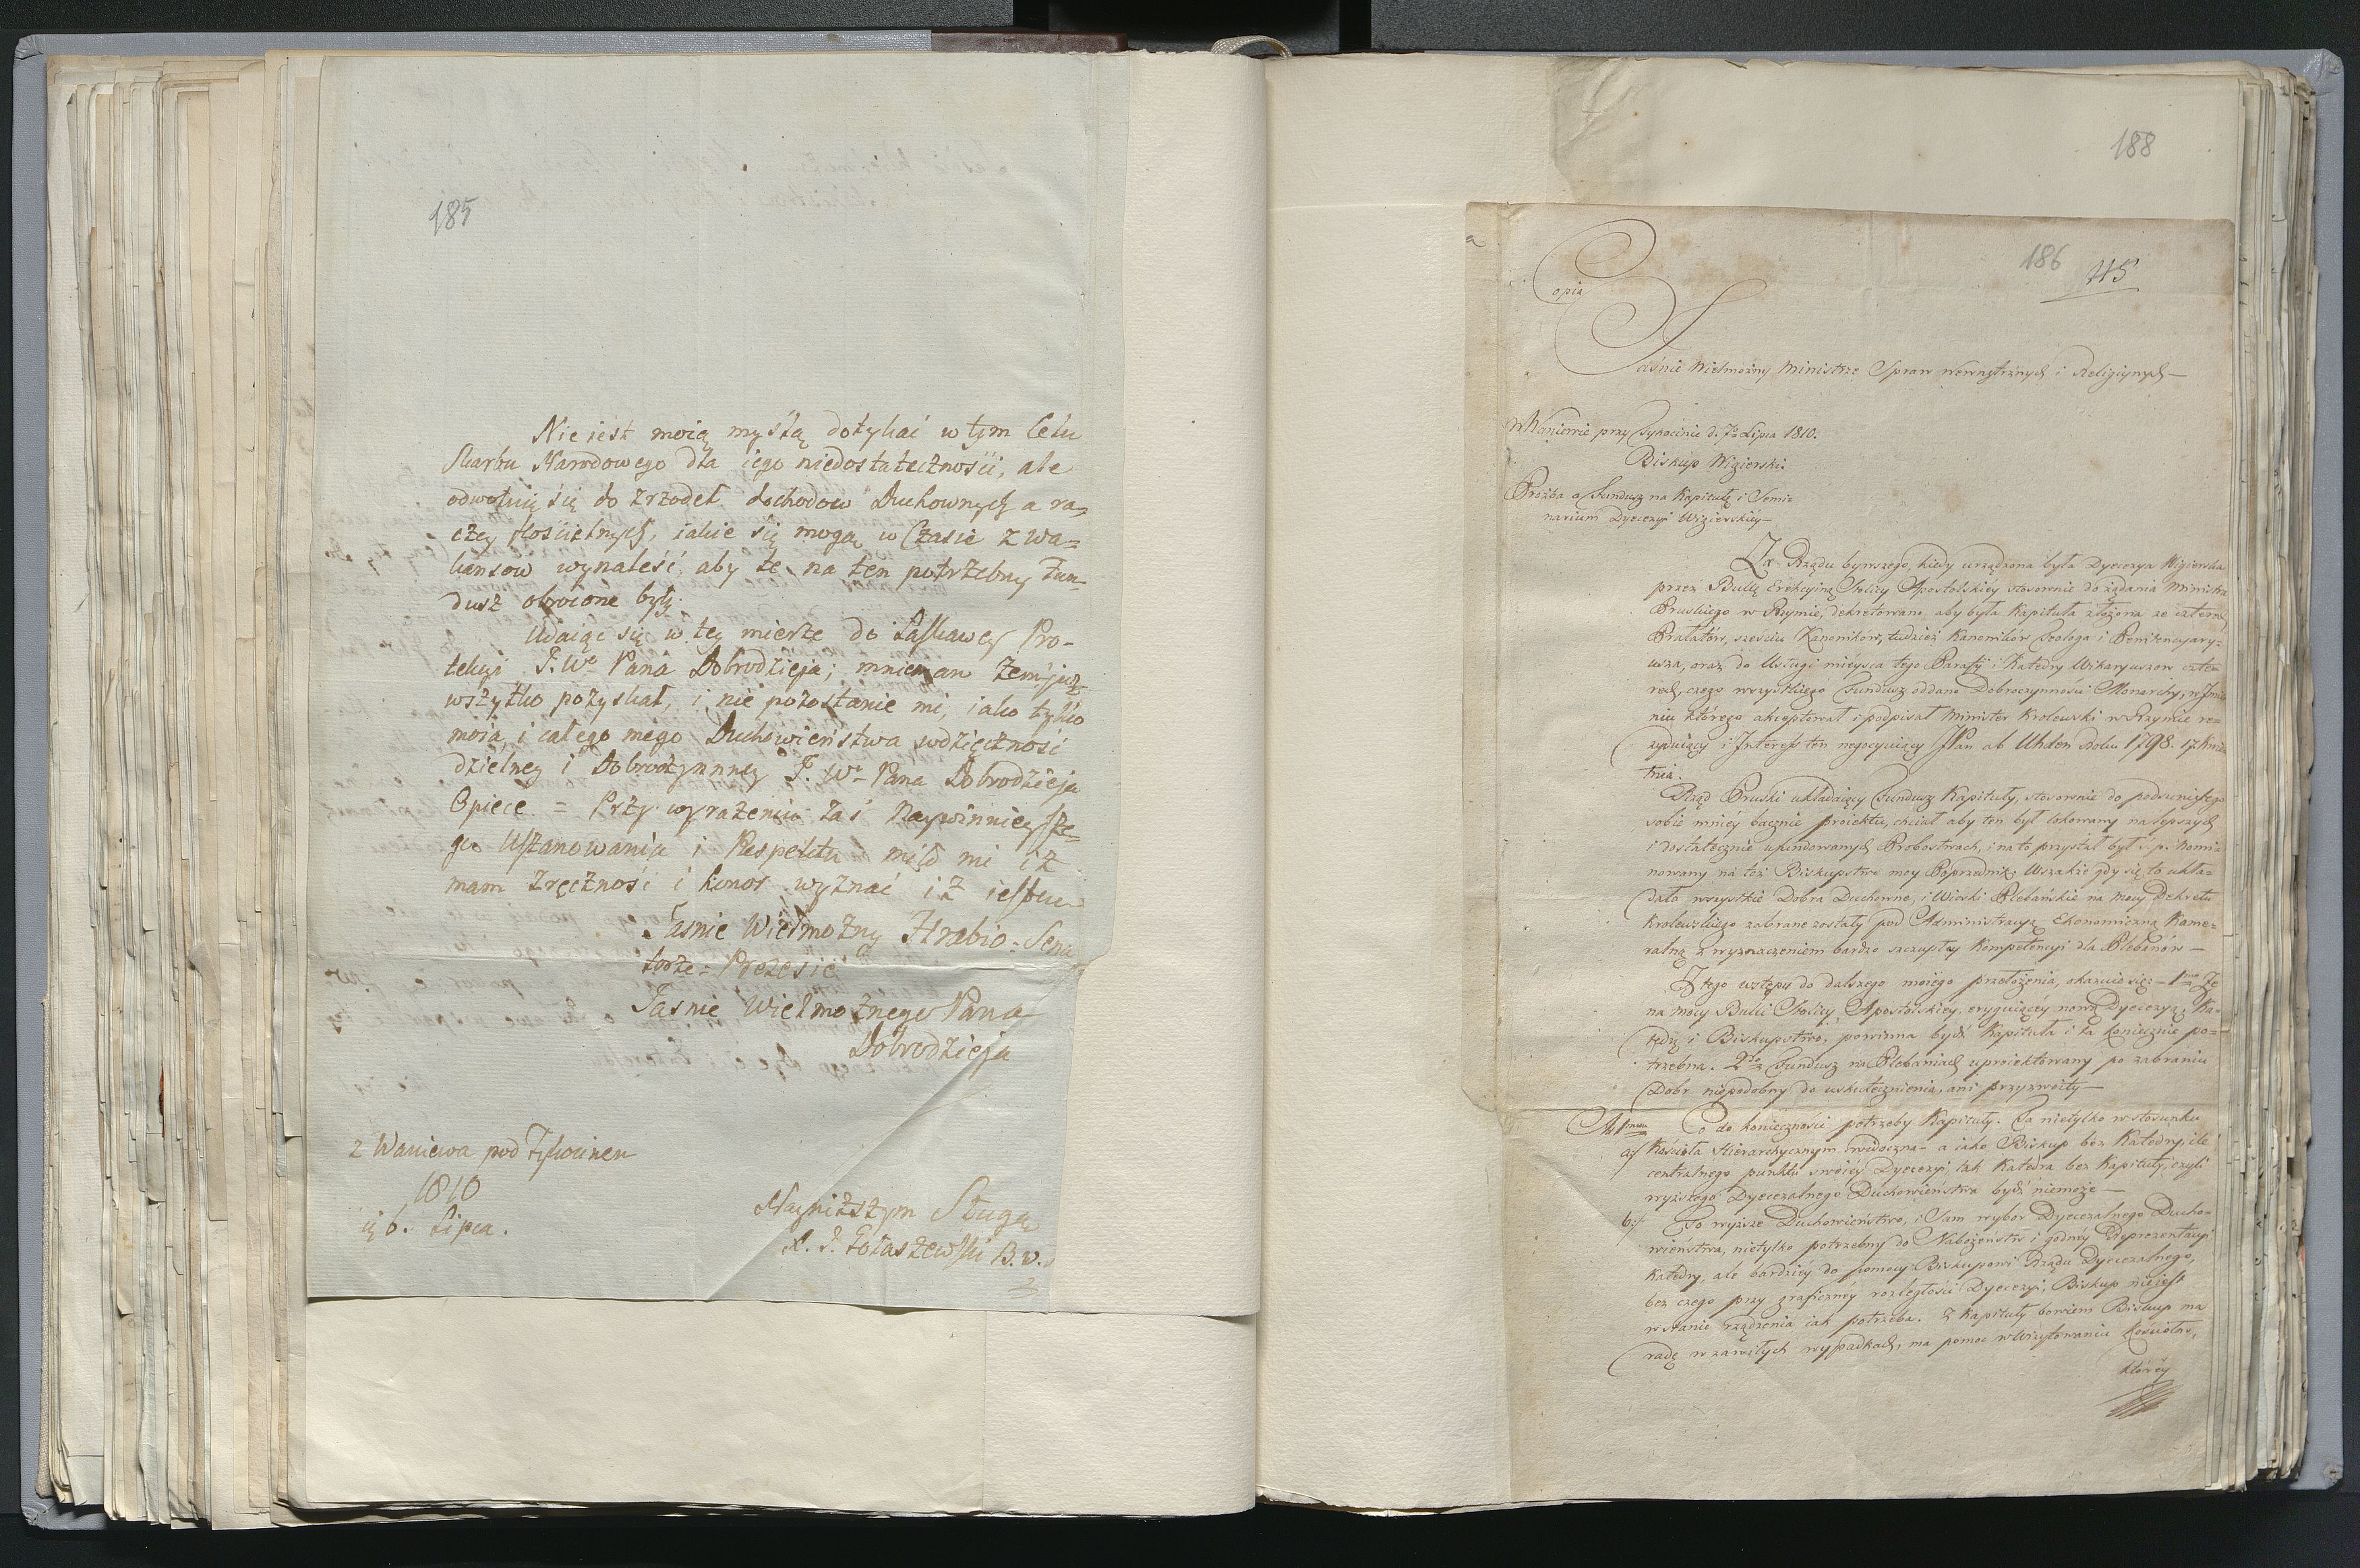 185
Nie iest moią myślą dotykać w tym Celu
Skarbu Narodowego dla iego niedostateczności, ale
odwołuię się do zrzodeł dochodow Duchownych a ra=
czey Kościelnych, iakie się mogą w Czasie z wa=
kansow wynaleść, aby te na ten potrzebny Fun=
dusz obrocone były.
Udaiąc się w tey mierze do Łaskawey Pro-
tekcyi J. We Pana Dobrodzieja; mniemam żem już
wszytko pozyskał, i nie pozostanie mi, iako tylko
moia i całego mego Duchowieństwa wdzięczność
dzielney i Dobroczynnney J. We Pana Dobrodzieja
Opiece = Przy wyrażeniu zaś Naywinnieysze=
go Uszanowania i Respektu miło mi iż
mam zręczność i honor wyznać iż iestem
Jasnie Wielmożny Hrabio = Sena
torze = Prezesie
Jasnie Wielmożnego Pana
Dobrodzieja
z Waniewa pod Tykocinem
1810
6. Lipca.
Nayniższym Sługą
X. J. Gołaszewski B. W.
188
186
45
Copia
Jaśnie Wielmożny Ministrze Spraw Wewnętrznych i Religiynych —
W Waniewie przy Tykocinie d. 7o Lipca 1810.
Biskup Wigierski.
Prozba o Fundusz na Kapitułę i Semi=
narium Dyecezyi Wigierskiéy —
Za Rządu bywszego, kiedy urządzona była Dyecezya Wigierska
przez Bullę Erekcyiną Stolicy Apostolskiéy stosownie do żądania Ministra
Pruskiego w Rzymie, dekretowano, aby była Kapituła złożona ze czterech
Prałatów, sześciu Kanonikow, tudzież Kanonikow Teologa i Penitencyary=
usza, oraz do Usługi mieysca tego Parafii i Katedry Wikaryuszow czte=
rech, czego wszystkiego Fundusz oddano Dobroczynności Monarchy, w Imie
niu którego akceptował i podpisał Minister Krolewski w Rzymie re=
zyduiący i Interess ten negocyuiący JPan ab Uhden Roku 1798. 17 Kwie
tnia.
Rząd Pruski układaiący Fundusz Kapituły, stosownie do podsuniętego
sobie mniéy bacznie proiektu, chciał aby ten był lokowany na lepszych
i dostatecznie upundowanych Probostwach, i na to przystał był ś. p. Nomi=
nowany na też Biskupstwo moy Poprzednik; Wszakże gdy się to ukła=
dało wszystkie Dobra Duchowne, i Wioski Plebańskie na mocy Dekretu
Krolewskiego zabrane zostały pod Administracyą Ekonomiczną Kame=
ralną z wyznaczeniem bardzo szczupłey Kompetencyi dla Plebanow —
Z tego wstępu do dalszego moiego przełożenia, okazuie się: — 1mo Że
na mocy Bulli Stolicy Apostolskiey, eryguiącéy nową Dyecezyą, Ka=
tedrę i Biskupstwo, powinna bydź Kapituła i ta koniecznie po=
trzebna. 2do Fundusz na Plebaniach uproiektowany po zabraniu
Dobr niepodobny do uskutecznienia, ani przyzwoity —
Ad 1mum Co do konieczności potrzeby Kapituły. Ta nietylko w stosunku
a:/ Kościoła Hierarchycznym widoczna — a iako Biskup bez Katedry, ile
centralnego punktu swoiéy Dyecezyi, tak Katedra bez Kapituły, czyli
wyższego Dyecezalnego Duchowieństwa bydź niemoże —
b:/ To wyższe Duchowieństwo, i Sam wybor Dyecezalnego Ducho=
wieństwa, nietylko potrzebny do Nabożeństw i godnéy Reprezentacyi
Katedry, ale bardziéy do pomocy Biskupowi Rządu Dyecezalnego,
bez czego przy graficznéy rozległości Dyecezyi, Biskup nieiest
w stanie rządzenia iak potrzeba. Z Kapituły bowiem Biskup ma
radę w zawiłych wypadkach, ma pomoc w Wizytowaniu Kościołow,
któréy